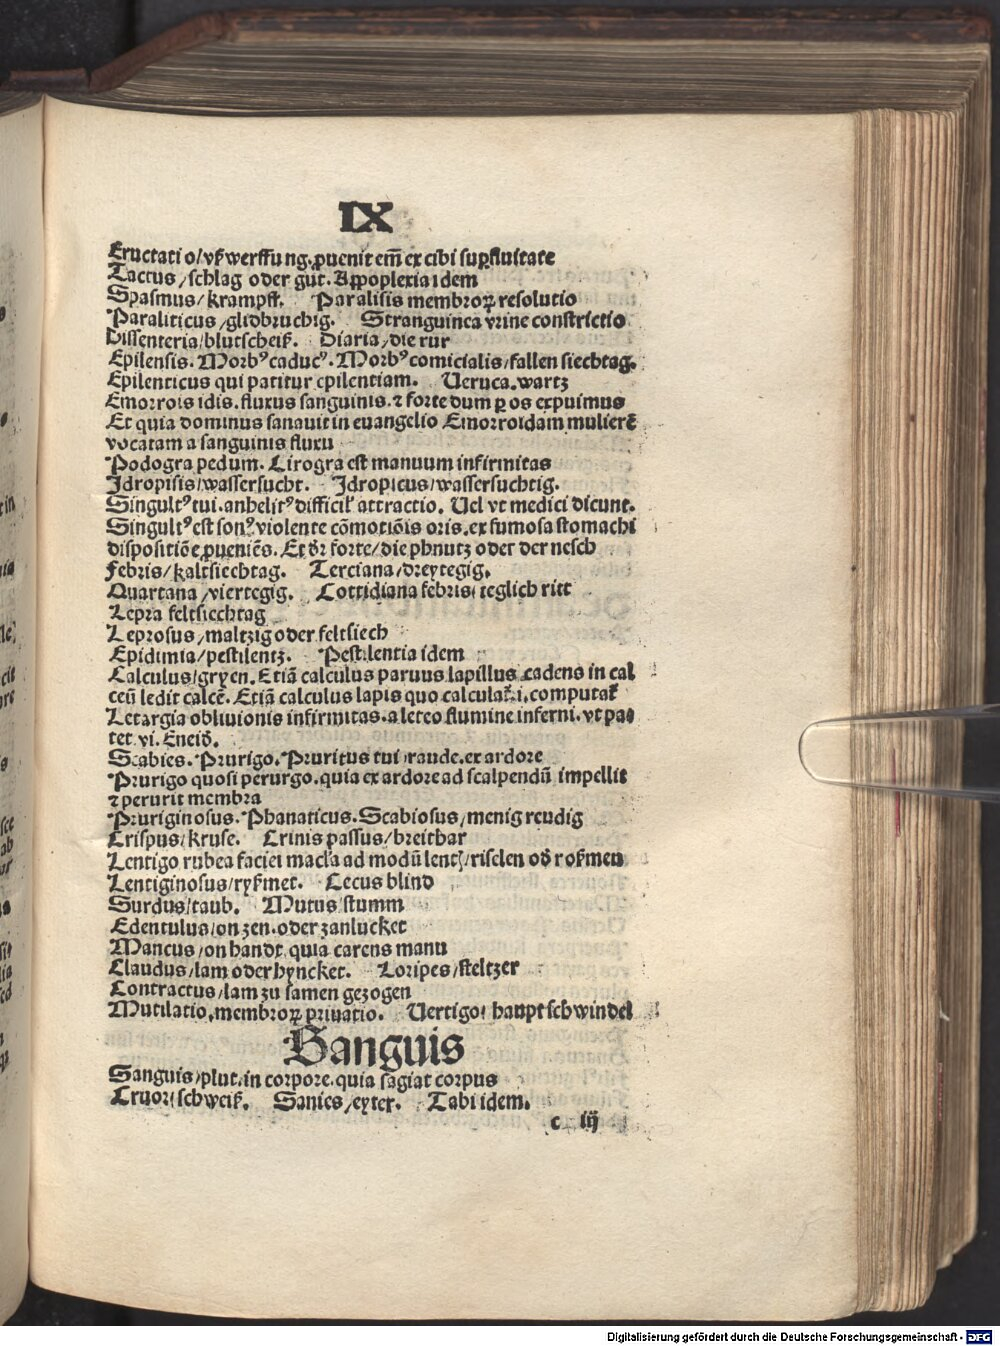 IX
Eructatio/vßwerffung.ꝓuenit em̄ ex cibi suꝑfluitate
Tactus/schlag oder gut. Appoplexia idem
Spasmus/krampff. Paralisis membroꝝ resolutio
Paraliticus/glidbruchig. Stranguinea vrine constrictio
Dissenteria/blutscheiß. Diaria/die rur
Epilensis. Morbꝰ caducꝰ. Morbꝰ comicialis/fallen siechtag.
Epilenticus qui patitur epilentiam. Veruca.wartz
Emorrois idis.fluxus sanguinis.⁊ forte dum ꝑ os expuimus
Et quia dominus sanauit in euangelio Emorroidam mulierē
vocatam a sanguinis fluxu
Podogra pedum. Cirogra est manuum infirmitas
Jdropisis/wassersucht. Jdropicus/wassersuchtig.
Singultꝰ tui.anhelitꝰ difficil' attractio. Uel vt medici dicunt.
Singultꝰ est sonꝰ violente cōmotiōis oris.ex fumosa stomachi
dispositiōe ꝓueniēs. Et dr̄ forte/die phnutz oder der nesch
Febris/kaltsiechtag. Terciana/dreytegig.
Quartana/viertegig. Cottidiana febris/teglich ritt
Lepra feltsiechtag
Leprosus/maltzig oder feltsiech
Epidimia/pestilentz. Pestilentia idem
Calculus/gryen. Etiā calculus paruus lapillus cadens in cal
ceū ledit calcē. Etiā calculus lapis quo calculat᷑.i.computat᷑
Letargia obliuionis infirmitas.a leteo flumine inferni.vt pa⸗
tet.vi.Eneid̄.
Scabies. Prurigo. Pruritus tui raude.ex ardore
Prurigo quosi perurgo.quia ex ardore ad scalpendū impellit
⁊ perurit membra
Pruriginosus. Phanaticus. Scabiosus/menig reudig
Crispus/kruse. Crinis passus/breithar
Lentigo rubea faciei mac̄la ad modū lent/riselen od̄ roßmen
Lentiginosus/ryßmet. Cecus blind
Surdus/taub. Mutus/stumm
Edentulus/on zen.oder zanlucket
Mancus/on handt quia carens manu
Claudus/lam oder hyncket. Loripes/steltzer
Contractus/lam zu samen gezogen
Mutilatio.membroꝝ priuatio. Uertigo/ hauptschwindel
Sanguis
Sanguis/plut.in corpore.quia sagiat corpus
Cruor/schweiß. Sanies/eyter. Tabi idem.
c iij
Digitalisierung gefördert durch die Deutsche Forschungsgemeinschaft - DFG